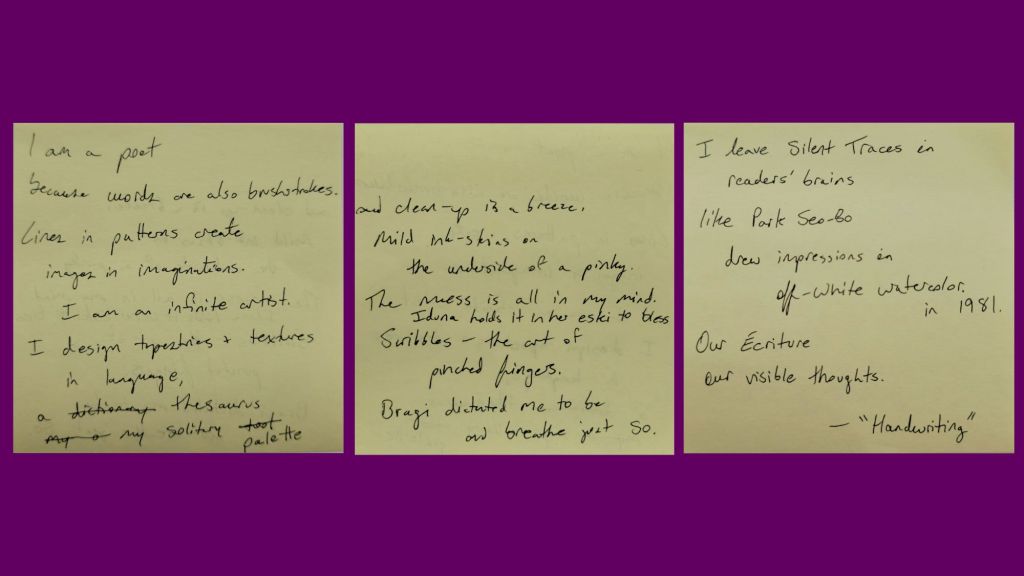 I am a poet
because words are also brushstrokes.
Lines in patterns create
images in imaginations.
I am an infinite artist.
I design tapestries + textures
in language,
a dictionary thesaurus
my a my solitary tool
palette
and clean-up is a breeze.
Mild ink-skins on
the underside of a pinky.
The mess is all in my mind.
Iduna holds it in her eski to bless
Scribbles – the art of
pinched fingers.
Bragi dictated me to be
and breathe just so.
I leave Silent Traces in
readers' brains
like Park Seo-Bo
drew impressions in
off-white watercolor.
in 1981.
Our Écriture
our visible thoughts.
— "Handwriting"